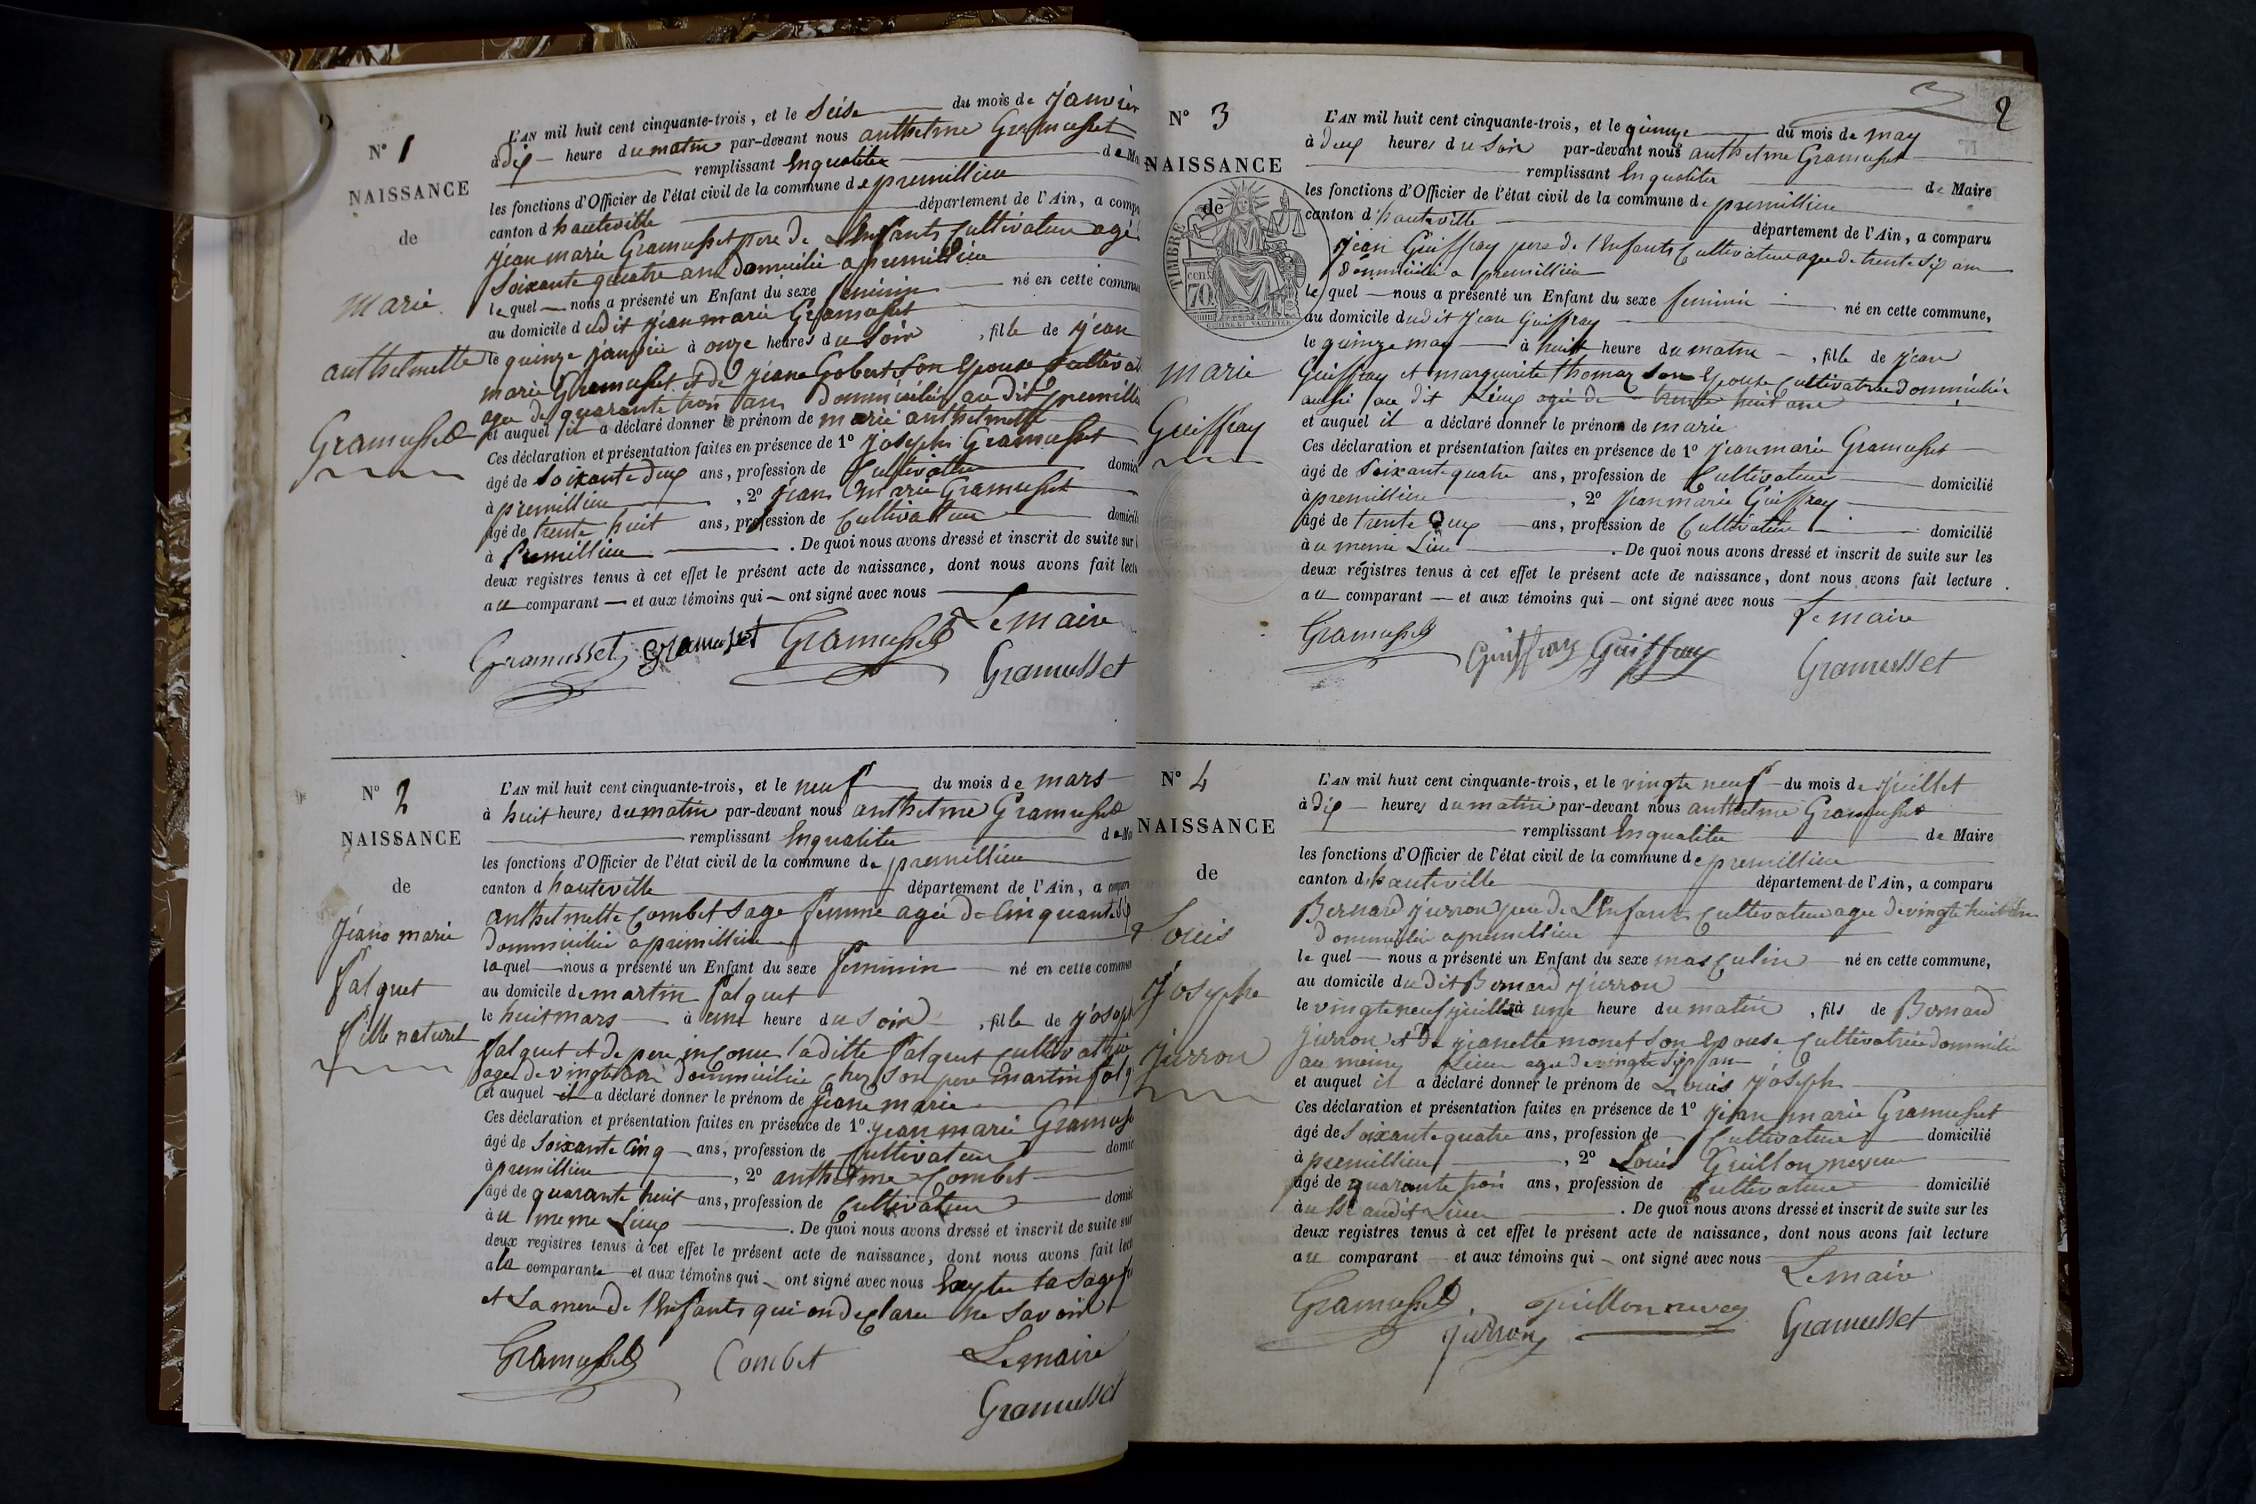 N° 1
NAISSANCE
de
Marie
anthelmette
Gramusset
L'AN mil huit cent cinquante-trois, et le Seise du mois de Janvier
à dix heure du matin par-devant nous anthelme Gramusset
remplissant Enqualite de
les fonctions d'Officier de l'état civil de la commune de premillieu
canton d hauteville département de l'Ain, a
jean marie Gramusset pere de L'Enfants Cultivateur agé
Soixante quatre ans domicilie a premillieu
le quel nous a présenté un Enfant du sexe feminin né en cette
au domicile d udit jean marie Gramusset
le quinze janvier à onze heures du Soir , fille de jean
marie Gramusset et de jeane Gobert Son Epouse
age de quarante trois ans domiciliée au dit
et auquel il a déclaré donner le prénom de marie anthelmette
Ces déclaration et présentation faites en présence de 1° joseph Gramusset
âgé de Soixante deux ans, profession de Cultivateur
à premillieu , 2° jean marie Gramusset
âgé de trente huit ans, profession de Cultivateur
à Premillieu . De quoi nous avons dressé et inscrit de suite sur
deux registres tenus à cet effet le présent acte de naissance, dont nous avons fait
au comparant et aux témoins qui ont signé avec nous
Le maire
Gramusset Gramuset Gramusset
Gramusset
N° 2
NAISSANCE
de
jeane marie
falquet
fille naturel
L'AN mil huit cent cinquante-trois, et le neuf du mois de mars
à huit heures du matin par-devant nous anthelme Gramusset
remplissant Enqualite de
les fonctions d'Officier de l'état civil de la commune de premillieu
canton d hauteville département de l'Ain, a
anthelmette Combet Sage femme agée de Cinquante Six
domicilie a premillieu
laquel nous a présenté un Enfant du sexe feminin né en cette
au domicile de martin falquet
le huit mars à une heure du Soir , fille de
falquet et de pere inconu laditte falquet
age de vingt ans domicilie chez Son pere martin
et auquel il a déclaré donner le prénom de jeane marie
Ces déclaration et présentation faites en présence de 1° jean marie
âgé de Soixante Cinq ans, profession de Cultivateur
à premillieu , 2° anthelme Combet
âgé de quarante huit ans, profession de Cultivateur
à u meme Lieux . De quoi nous avons dressé et inscrit de suite sur
deux registres tenus à cet effet le présent acte de naissance, dont nous avons fait
a la comparante et aux témoins qui ont signé avec nous Exepte la Sage
et La mere de l'Enfants qui on declare ne Savoir
Gramusset Combet Le maire
Gramusset
2
N° 3
NAISSANCE
de
TIMBRE
70
marie
Guiffray
L'AN mil huit cent cinquante-trois, et le quinze du mois de may
à deux heures du Soir par-devant nous anthelme Gramusset
remplissant Enqualite de Maire
les fonctions d'Officier de l'état civil de la commune de premillieu
canton d hauteville département de l'Ain, a comparu
jean Guiffray pere de l'Enfants Cultivateur age de trente Six ans
domicilie a premillieu
le quel nous a présenté un Enfant du sexe feminin né en cette commune,
au domicile dudit jean Guiffray
le quinze may à huit heure du matin , fille de jean
Guiffray et marguerite thomaz Son Epouse Cultivatrice domiciliée
aussi au dit Lieux agé de trente huit ans
et auquel il a déclaré donner le prénom de marie
Ces déclaration et présentation faites en présence de 1° jean marie Gramusset
âgé de Soixante quatre ans, profession de Cultivateur domicilié
à premillieu , 2° jean marie Guiffray
âgé de trente Deux ans, profession de Cultivateur domicilié
à u meme Lieu . De quoi nous avons dressé et inscrit de suite sur les
deux régistres tenus à cet effet le présent acte de naissance, dont nous avons fait lecture
au comparant et aux témoins qui ont signé avec nous
Le maire
Gramusset Guiffray Guiffray Gramusset
N° 4
NAISSANCE
de
Louis
josephe
jurron
L'AN mil huit cent cinquante-trois, et le vingte neuf du mois de juillet
à dix heures du matin par-devant nous anthelme Gramusset
remplissant Enqualite de Maire
les fonctions d'Officier de l'état civil de la commune de premillieu
canton d hauteville département de l'Ain, a comparu
Bernard jurron pere de L'Enfants Cultivateur age de vingte huit ans
domicilie a premillieu
le quel nous a présenté un Enfant du sexe masculin né en cette commune,
au domicile du dit Bernard jurron
le vingte neuf juillet à une heure du matin , fils de Bernard
jurron et de jeanette monet Son Epouse Cultivatrice domicilie
au meme Lieu age de vingte Sept ans
et auquel il a déclaré donner le prénom de Louis joseph
Ces déclaration et présentation faites en présence de 1° jean marie Gramusset
âgé de Soixante quatre ans, profession de Cultivateur domicilié
à premillieu , 2° Louis Guillon neveu
âgé de quarante trois ans, profession de Cultivateur domicilié
à audit Lieu . De quoi nous avons dressé et inscrit de suite sur les
deux registres tenus à cet effet le présent acte de naissance, dont nous avons fait lecture
au comparant et aux témoins qui ont signé avec nous
Le maire
Gramusset Guillon neveu
jurron Gramusset